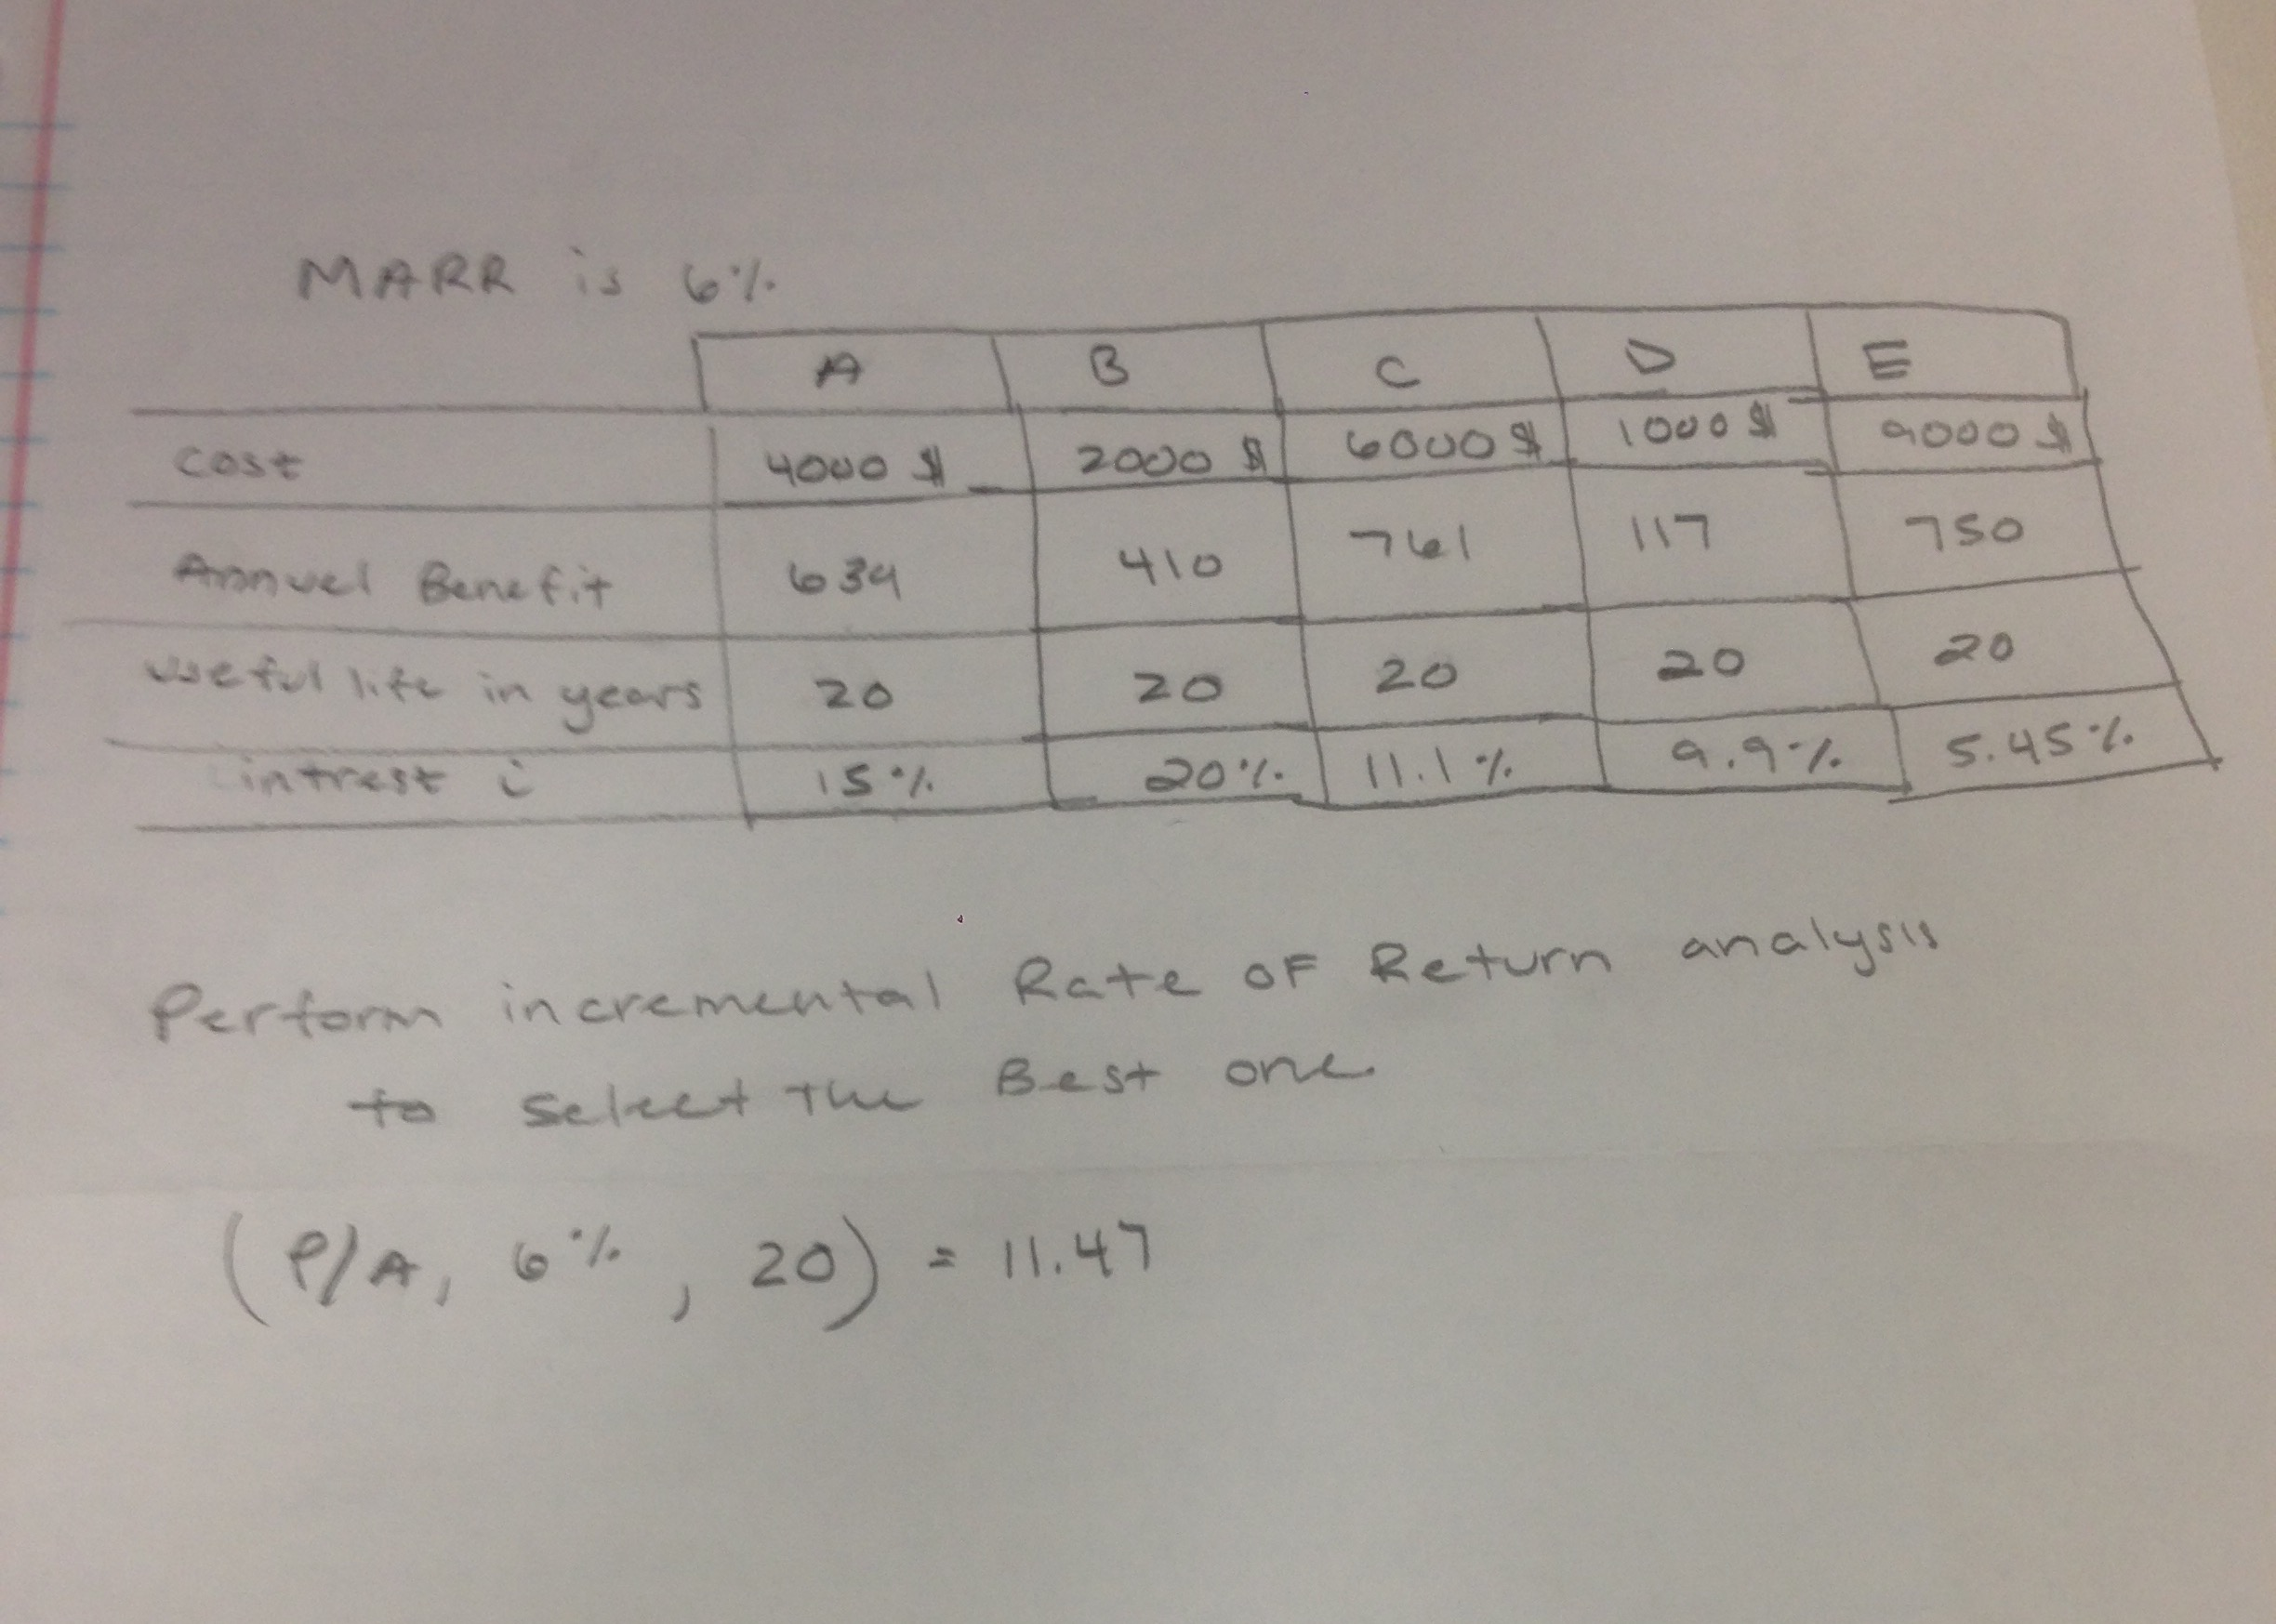 MARR is 6%
A B C D E
Cost 4000 $ 2000 $ 6000 $ 1000 $ 9000 $
Annuel Benefit 639 410 761 117 750
useful life in years 20 20 20 20 20
intrest i 15% 20% 11.1% 9.9% 5.45%
Perform incremental Rate OF Return analysis
to Select The Best one.
(P/A, 6%, 20) = 11.47